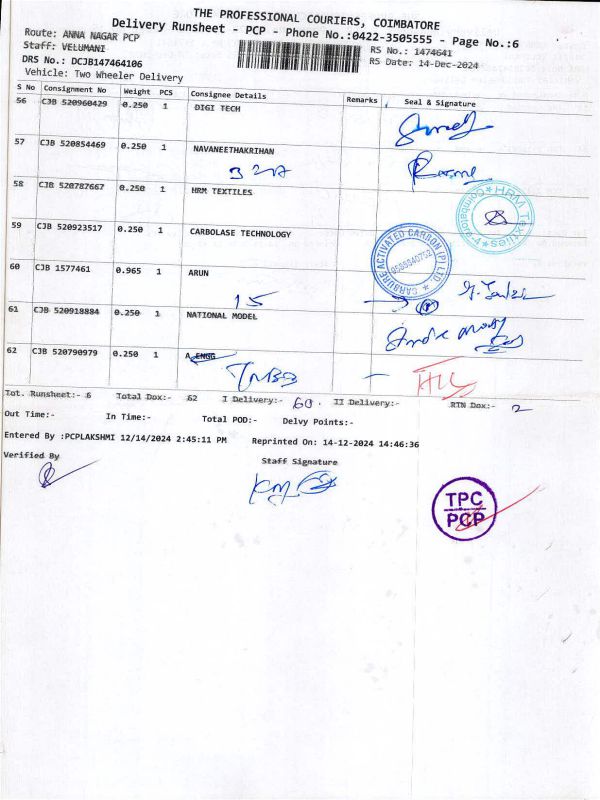 THE PROFESSIONAL COURIERS, COIMBATORE
Delivery Runsheet - PCP - Phone No.:0422-3505555 - Page No.:6
Route: ANNA NAGAR PCP
Staff: VELUMANI
RS No.: 1474641
DRS No.: DCJB147464106
RS Date: 14-Dec-2024
Vehicle: Two Wheeler Delivery
S No Consignment No Weight PCS Consignee Details Remarks Seal & Signature
56 CJB 520960429 0.250 1 DIGI TECH
57 CJB 520854469 0.250 1 NAVANEETHAKRIHAN
58 CJB 520787667 0.250 1 HRM TEXTILES
HRM Textiles
59 CJB 520923517 0.250 1 CARBOLASE TECHNOLOGY
60 CJB 1577461 0.965 1 ARUN
15
61 CJB 520918884 0.250 1 NATIONAL MODEL
62 CJB 520790979 0.250 1 A ENGG
Tot. Runsheet:- 6 Total Dox:- 62 I Delivery:- 60 II Delivery:- RTN Dox:- 2
Out Time:- In Time:- Total POD:- Delvy Points:-
Entered By :PCPLAKSHMI 12/14/2024 2:45:11 PM Reprinted On: 14-12-2024 14:46:36
Verified By Staff Signature
TPC
PCP